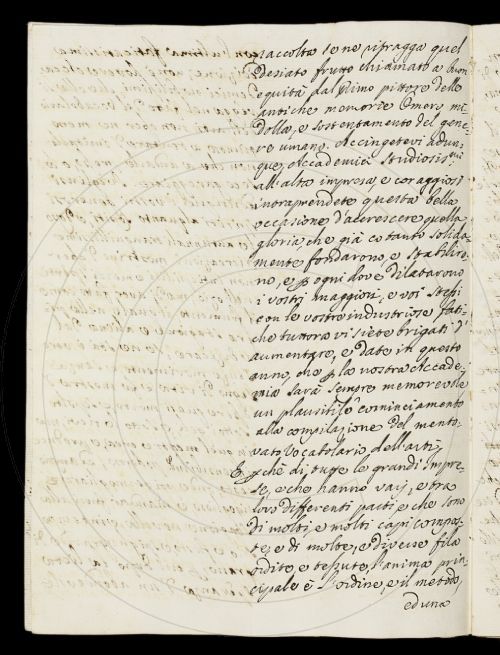 raccolta se ne ritragga quel
desiato frutto chiamato a buon
equità dal primo pittore delle
antiche memorie Omero mi-
dolla, e sostentamento del gene-
re umano. Accingetevi adun-
que, Accademici studiosissimi
all'alta impresa, e coraggiosi
intraprendete questa bella
occasione d'accrescere quella
gloria, che già cotanto solida-
mente fondarono, e stabiliro-
no, e p ogni dove dilatarono
i vostri maggiori, e voi stessi
con le vostre industriose fati-
che tuttora vi siete brigati d'
aumentare, e date in questo
anno, che p la nostra Accade-
mia sarà sempre memorevole
un plausibile cominciamento
alla compilazione del mento-
vato Vocabolario dell'arti.
E pchè di tutte le grandi impre-
se, e che hanno varj, e tra
loro differenti parti, e che sono
di molti, e molti capi compos-
te, e di molte, e diverse fila
ordite, e tessute, l'anima prin-
cipale è l'ordine, e il metodo,
ed una